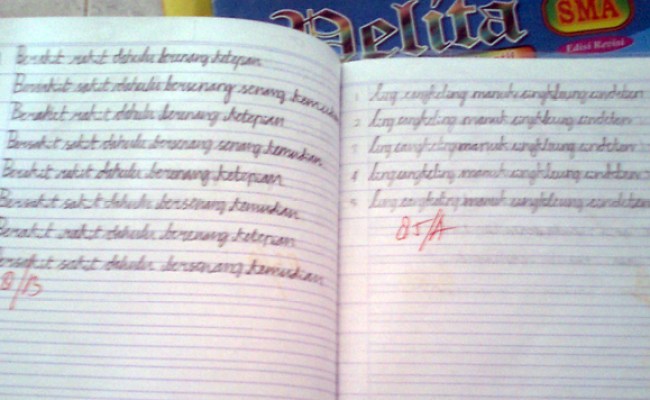 Pelita
SMA
Edisi Revisi
Berakit rakit dahulu berenang ketepian
Bersakit sakit dahulu bersenang senang kemudian
Berakit rakit dahulu berenang ketepian
Bersakit sakit dahulu bersenang senang kemudian
Berakit rakit dahulu berenang ketepian
Bersakit sakit dahulu bersenang kemudian
Berakit rakit dahulu berenang ketepian
ersakit sakit dahulu bersenang kemudian
/B
1 Ling cangkeling manuk cingkleung cindeten
2 Ling cangkeling manuk cingkleung cindeten
3 Ling cangkeling manuk cingkleung cindeten
4 Ling cangkeling manuk cingkleung cindeten
5 Ling cangkeling manuk cingkleung cindeten
85/A